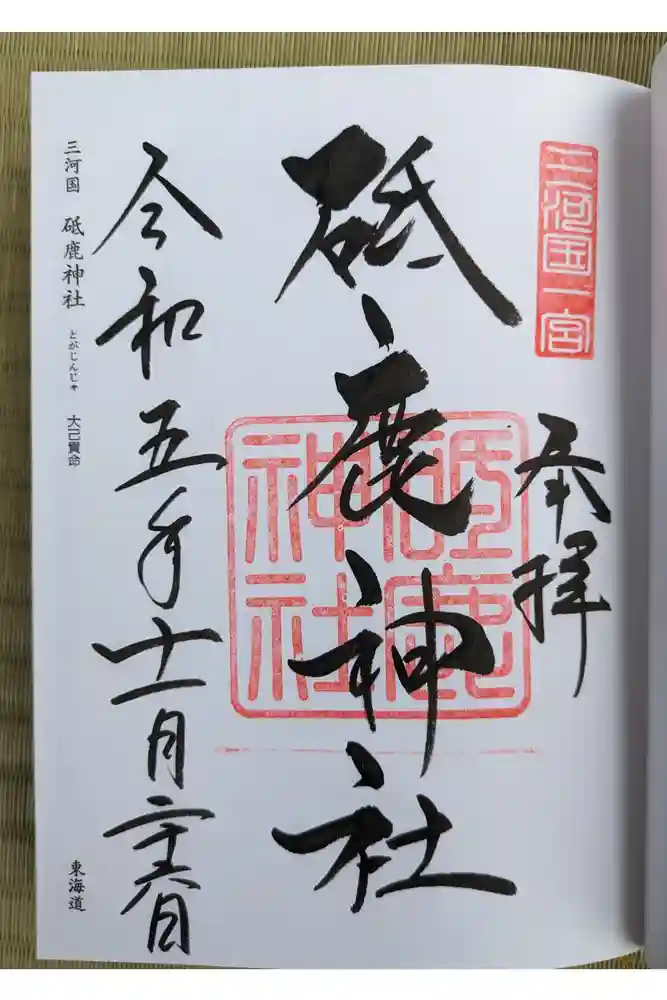 三河国一宮
奉拝
砥鹿神社
砥鹿神社
令和五年十一月二十六日
三河国 砥鹿神社 とがじんじゃ 大己貴命
東海道